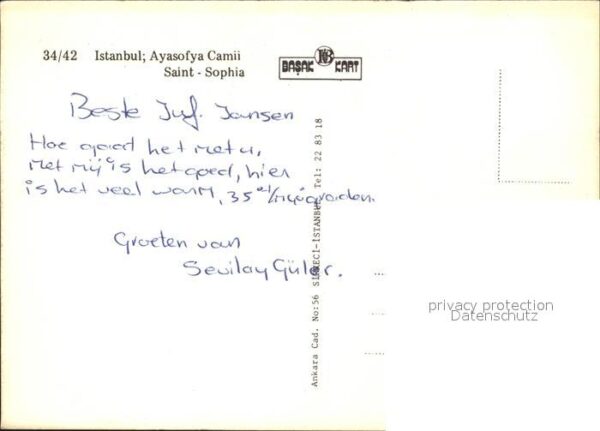 34/42 Istanbul; Ayasofya Camii
Saint - Sophia
BAŞAK KART
Beste Juf. Jansen
Hoe gaad het met u,
met mij is het goed, hier
is het veel warm, 35 graden.
Groeten van
Sevilay Güler.
Ankara Cad. No:56 SİRKECİ-İSTANBUL Tel: 22 83 18
privacy protection
Datenschutz